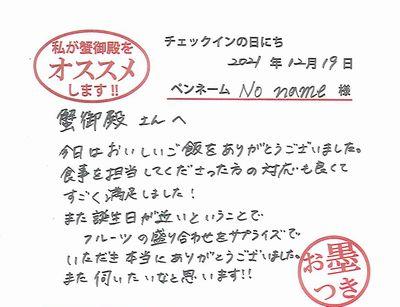 私が蟹御殿を
オススメ
します!!
チェックインの日にち
2021年12月19日
ペンネーム No name 様
蟹御殿さんへ
今日はおいしいご飯をありがとうございました。
食事を担当してくださった方の対応も良くて
すごく満足しました!
また誕生日が近いということで
フルーツの盛り合わせをサプライズで
いただき本当にありがとうございました。
また伺いたいなと思います!!
お墨
つき